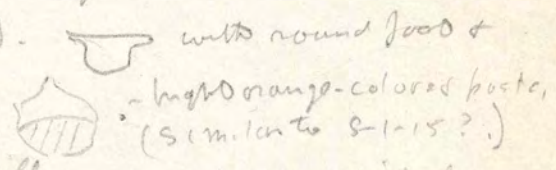 ). with round foot &
- bright orange-colored paste,
(similar to S-1-15?.)